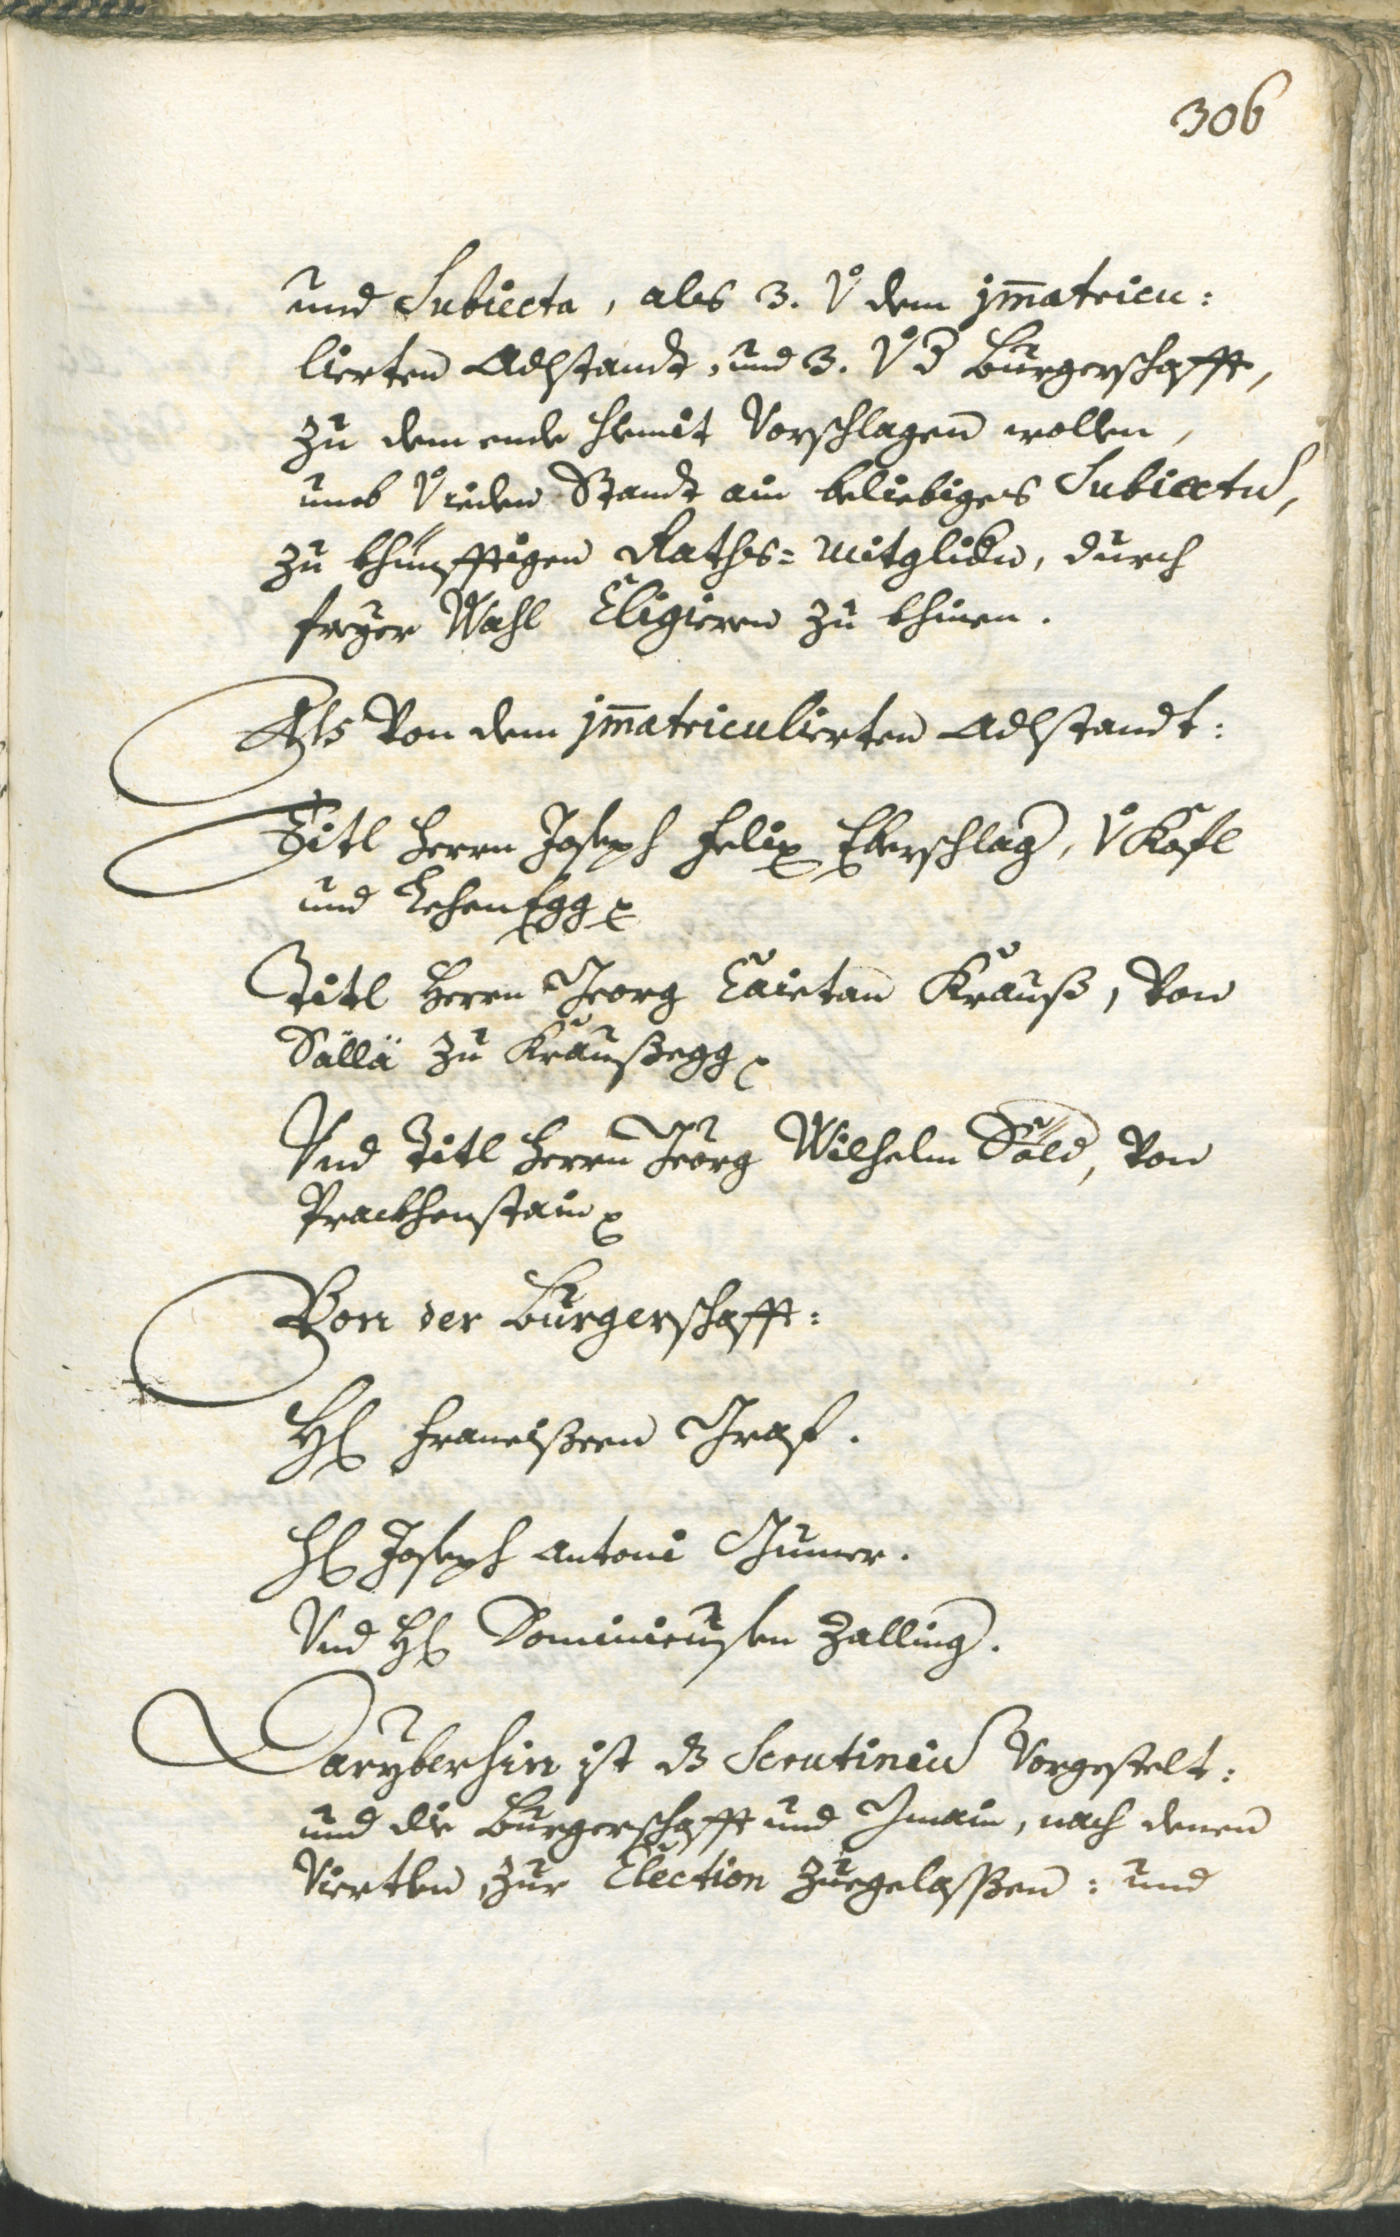 306
und Subiecta, als 3. v° dem jm̄atricu:
lierten Adlstandt, und 3. v° d Burgerschafft,
zu dem ende hiemit Vorschlagen wollen,
umb v° ieden Standt ain beliebiges Subiectu,
zu khünfftigen Raths= Mitgliden, durch
freÿer Wahl Eligieren zu khinen.
Als Von dem jm̄atriculierten Adlstandt:
Titl Herrn Joseph Felix Eberschlag, v° Kofl
und LehenEgg
Titl Herrn Georg Caietan Krauß, Von
Sällä zu Kraußegg
Vnd Titl Herrn Georg Wilhelm Söld, Von
Prackhenstain
Von der Burgerschafft:
H Francißcen Graf.
H Joseph Antoni Gumer.
Vnd H Dominicusen Zalling.
Daryberhin ist ds Scrutiniu Vorgestelt:
und die Burgerschafft und Gmain, nach denen
Viertlen, zur Election zuegelaßen: und